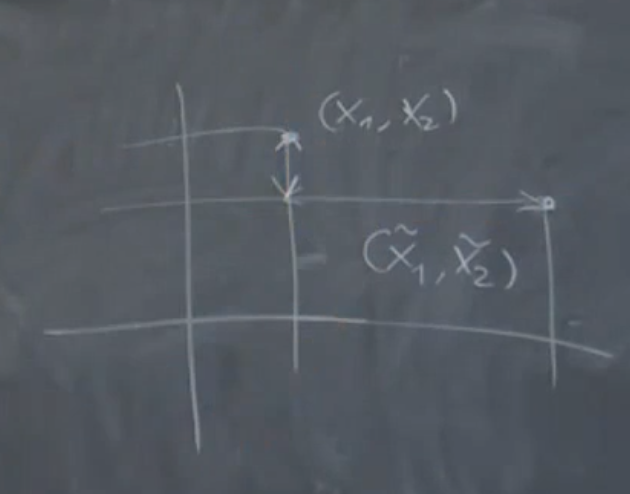 (x₁, x₂)
(x̃₁, x̃₂)